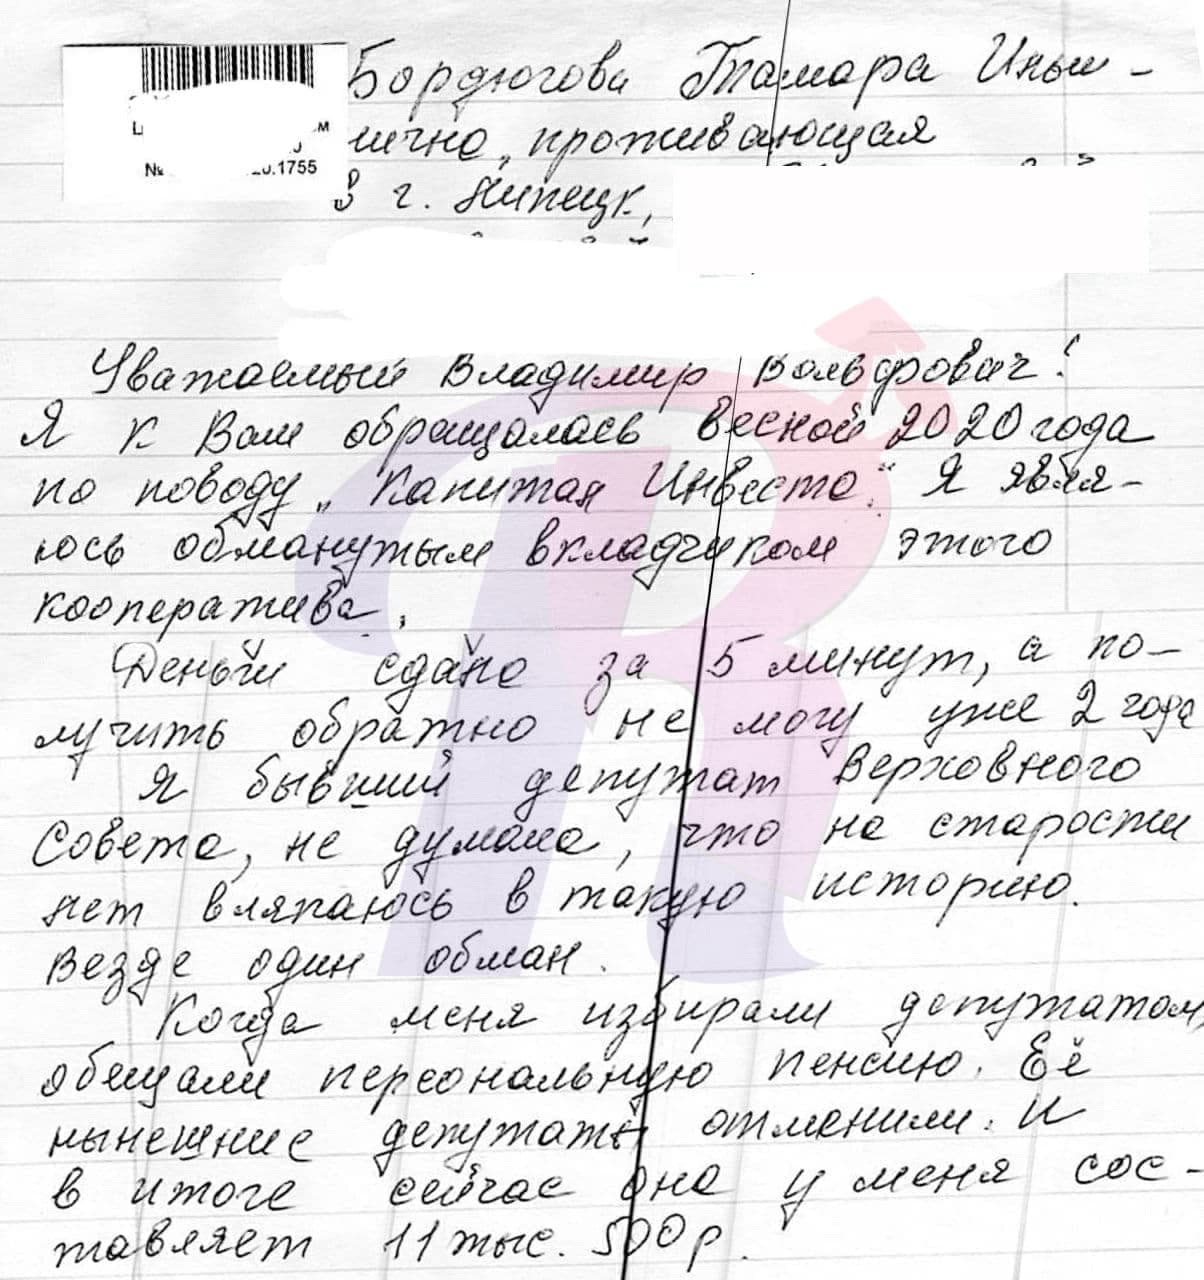 Бордюгова Тамара Ильи-
нична, проживающая
№ 20.1755
в г. Липецк,
Уважаемый Владимир Вольфович!
Я к Вам обращалась весной 2020 года
по поводу „Капитал Инвеста." Я явля-
юсь обманутым вкладчиком этого
кооператива.
Деньги сдала за 5 минут, а по-
лучить обратно не могу уже 2 года
Я бывший депутат Верховного
Совета, не думала, что на старости
лет вляпаюсь в такую историю.
Везде один обман.
Когда меня избирали депутатом,
обещали персональную пенсию. Её
нынешние депутаты отменили. И
в итоге сейчас она у меня сос-
тавляет 11 тыс. 500 р.